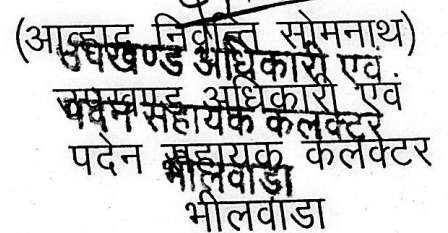 (आव्हाद निवृत्ति सोमनाथ)
उपखण्ड अधिकारी एवं
उपखण्ड अधिकारी एवं
पदेन सहायक कलक्टर
पदेन सहायक कलक्टर
भीलवाडा
भीलवाडा